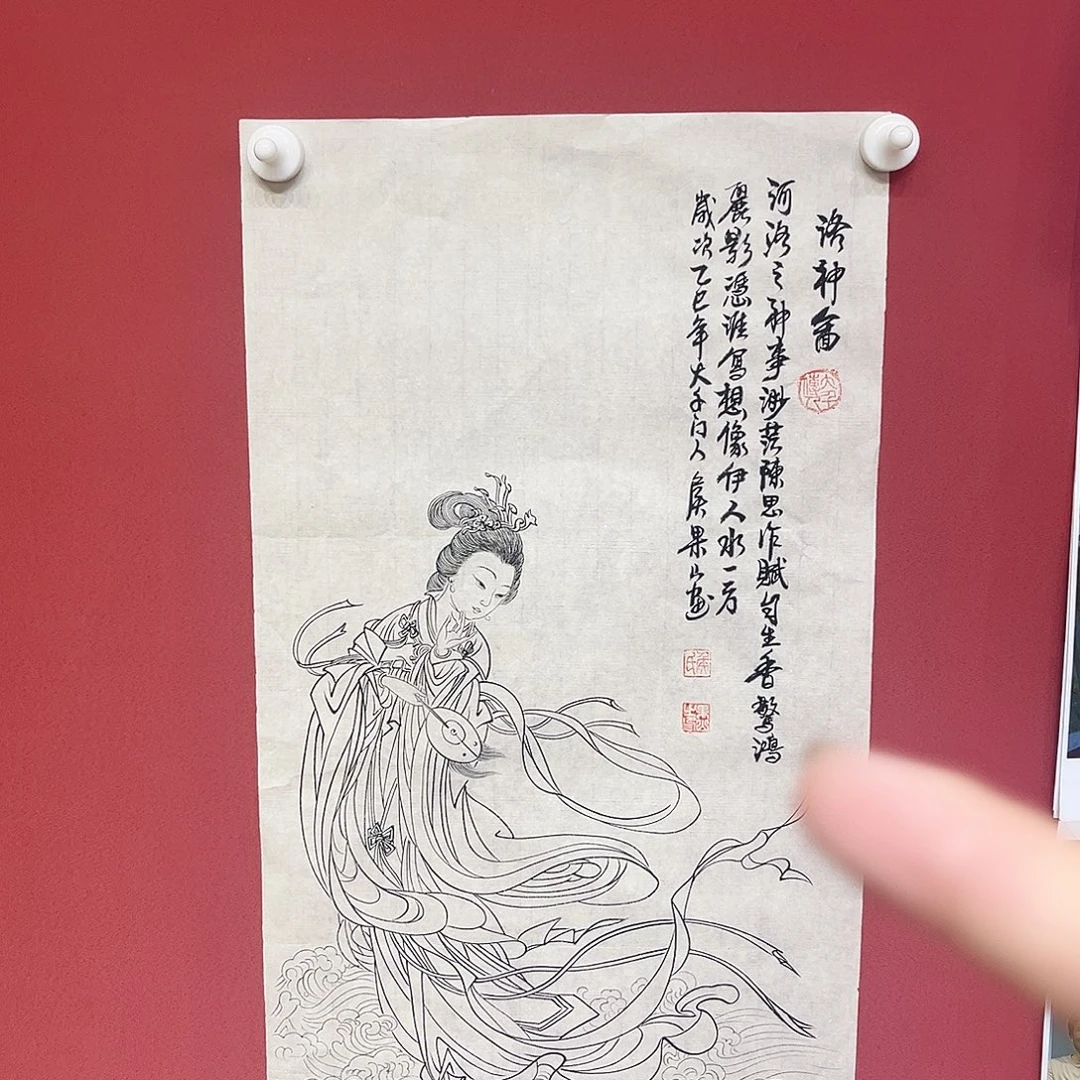 洛神啚
河洛之神事渺茫陳思作賦句生香驚鴻
麗影憑誰寫想像伊人水一方
歲次乙巳年大千门人侯果山画